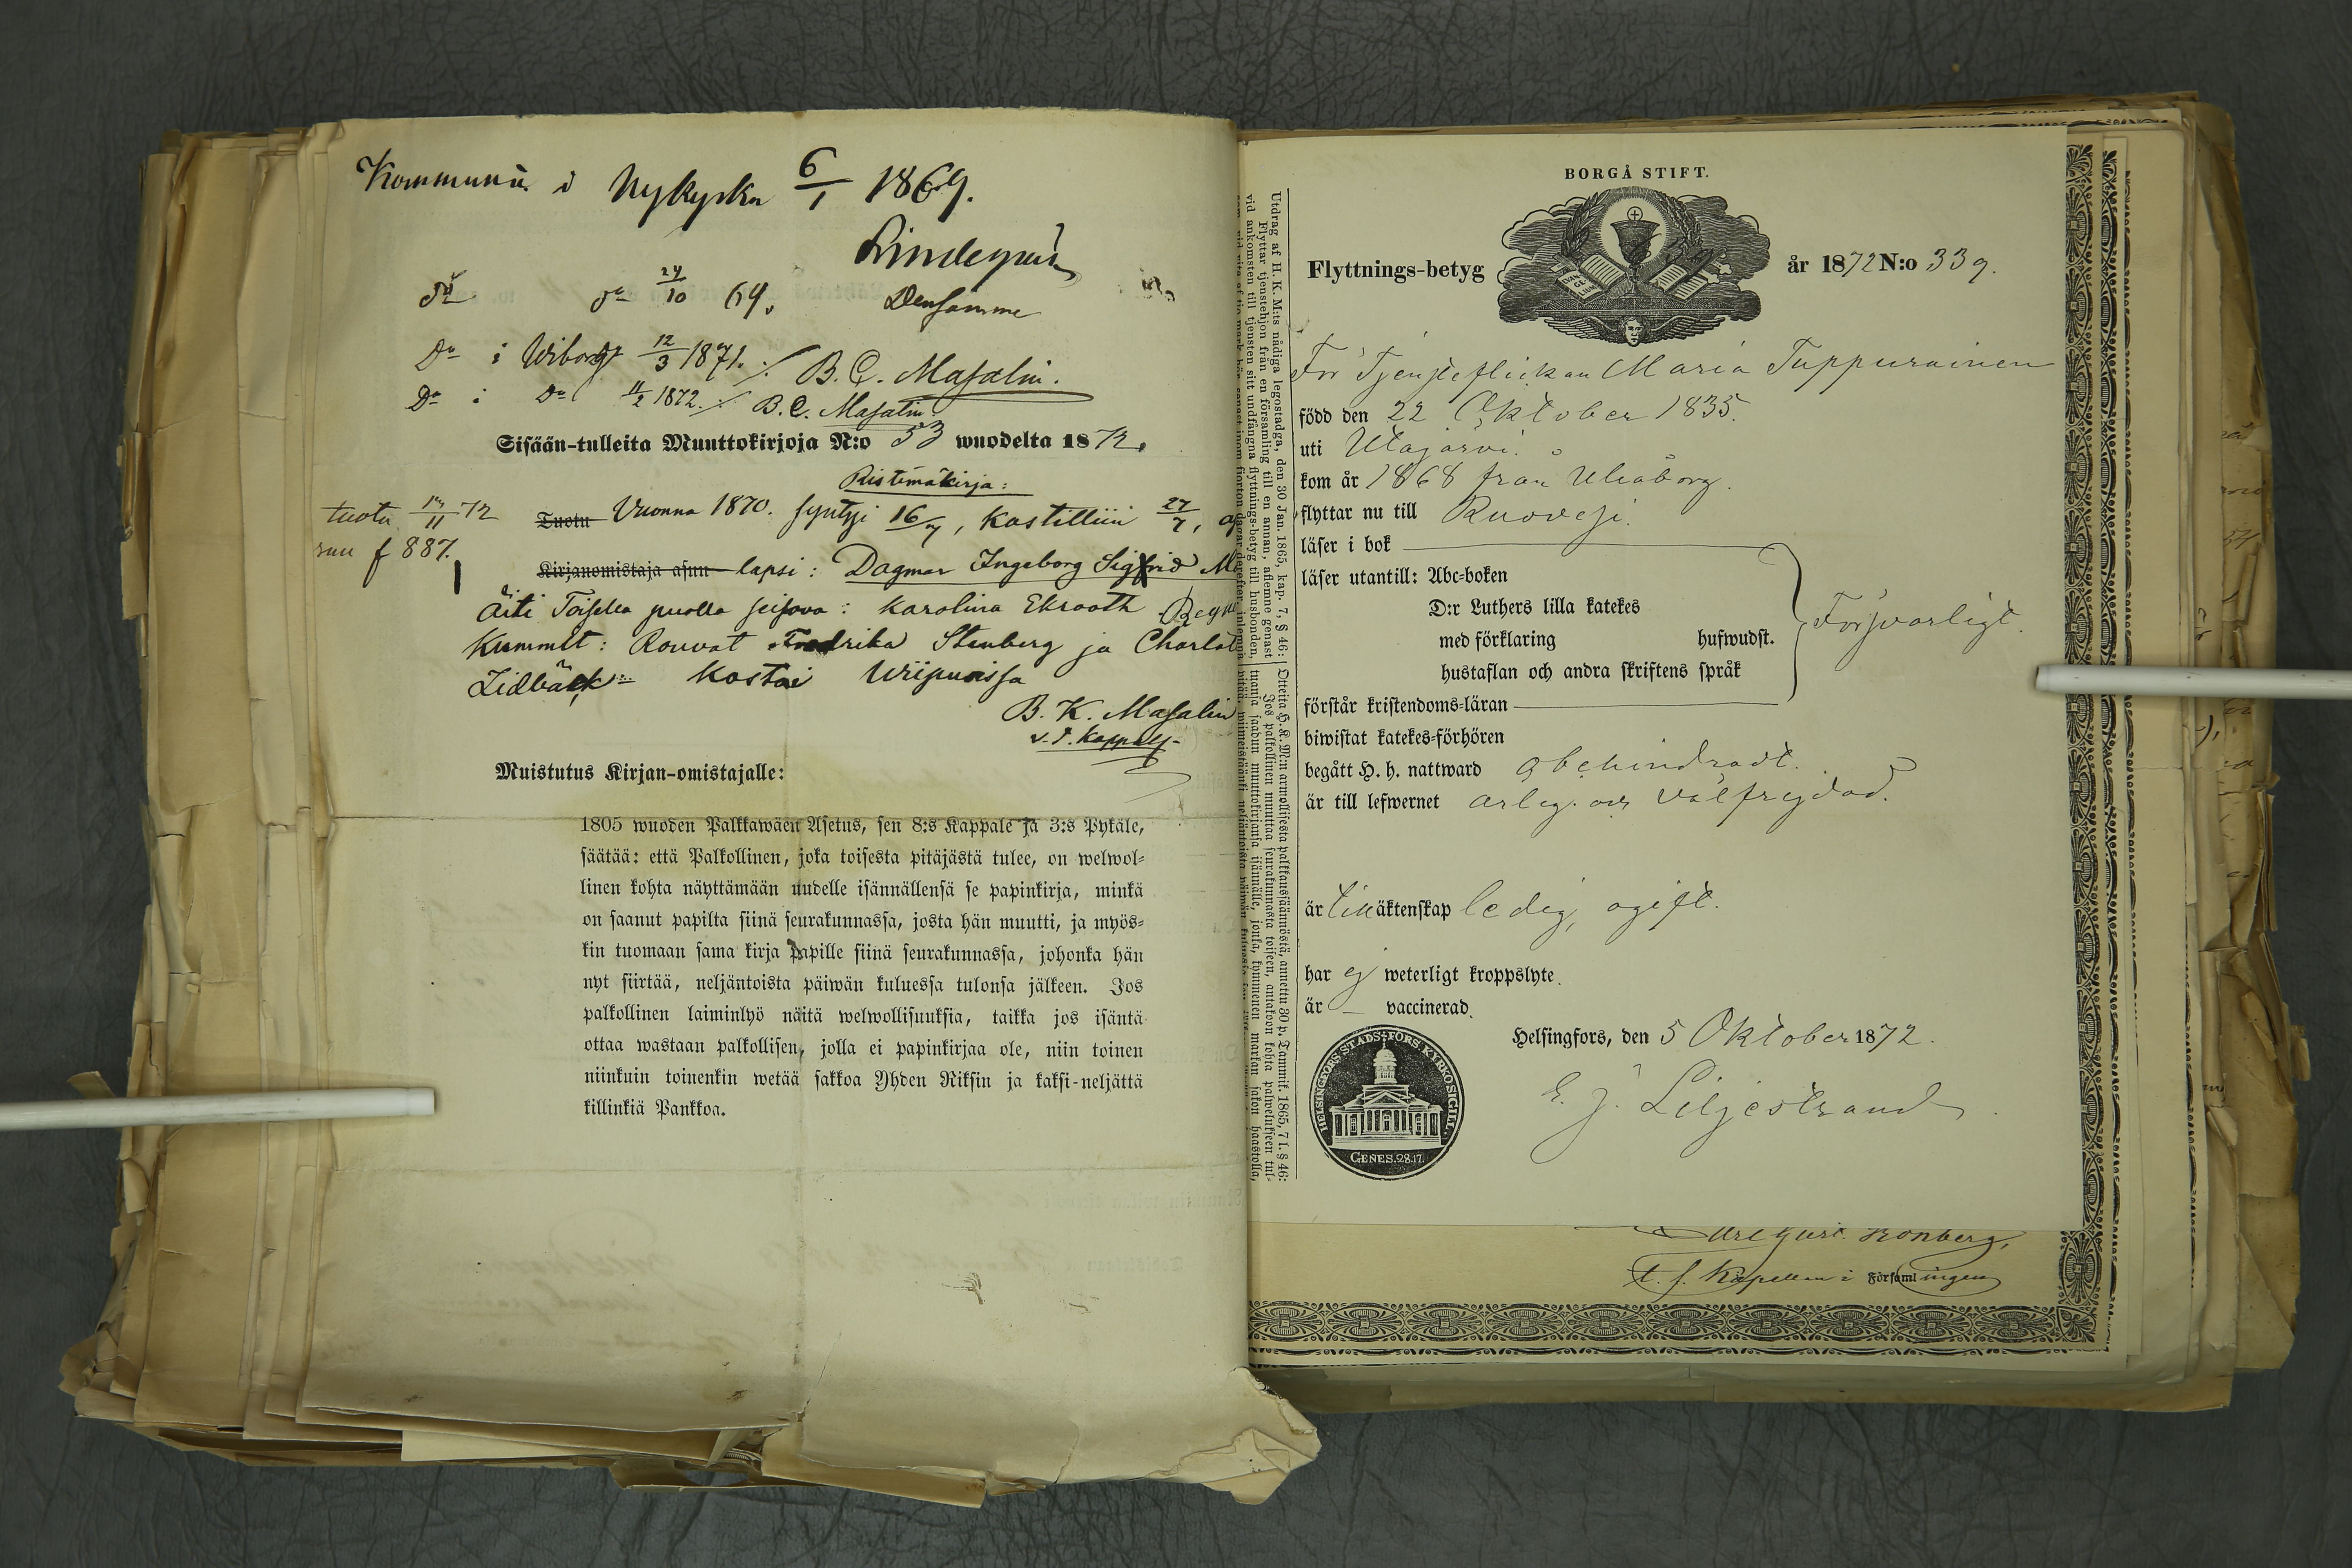 Kommunic. i Nykyrka 6/1 1869.
Lindegrén
Do do 24/10 69. Densamme
Do i Wiborg 12/3 1871. ./. B. C. Masalin.
Do i Do 11/2 1872. ./. B. C. Masalin
Sisään-tulleita Muuttokirjoja N:o 53 wuodelta 1872.
Ristimäkirja:
tuotu 17/11 72
siu f 887.
Tuotu Vuonna 1870. syntyi 16/7, kastettiin 27/7,
Kirjanomistaja asuu lapsi: Dagmar Ingeborg Sigfrid
Äiti Toisella puolla seisova: Karolina Ekrooth
Kummit: Rouvat Fredrika Stenberg ja Charlot
Lidbäck. Kastoi Wiipurissa
B. K. Masalin
v. t. Kappal.
Muistutus Kirjan-omistajalle:
1805 wuoden Palkkawäen Asetus, sen 8:s Kappale ja 3:s Pykäle,
säätää: että Palkollinen, joka toisesta pitäjästä tulee, on welwol-
linen kohta näyttämään uudelle isännällensä se papinkirja, minkä
on saanut papilta siinä seurakunnassa, josta hän muutti, ja myös-
kin tuomaan sama kirja papille siinä seurakunnassa, johonka hän
nyt siirtää, neljäntoista päiwän kuluessa tulonsa jälkeen. Jos
palkollinen laiminlyö näitä welwollisuuksia, taikka jos isäntä
ottaa wastaan palkollisen, jolla ei papinkirjaa ole, niin toinen
niinkuin toinenkin wetää sakkoa Yhden Riksin ja kaksi-neljättä
killinkiä Pankkoa.
Utdrag af H. K. M:ts nådiga legostadga, den 30 Jan. 1865, kap. 7, § 46:
Flyttar tjenstehjon från en församling till en annan, aflemne genast
vid ankomsten till tjensten sitt undfångna flyttnings-betyg till husbonden,
Otteita H. K. M:n armollisesta palkkaussäännöstä, annettu 30 p. Tammik. 1865, 7 l. § 46:
Jos palkollinen muuttaa seurakunnasta toiseen, antakoon kohta palwelukseen tul-
tuansa saadun muuttokirjansa isännälle, jonka, kymmenen markan sakon haastolla,
BORGÅ STIFT.
Flyttnings-betyg år 1872 N:o 339.
För Tjensteflickan Maria Tuppurainen
född den 22 Oktober 1835.
uti Utajärvi.
kom år 1868 från Uleåborg.
flyttar nu till Ruovesi.
läser i bok
läser utantill: Abc-boken
D:r Luthers lilla katekes
med förklaring hufwudst.
hustaflan och andra skriftens språk
Försvarligt.
förstår kristendoms-läran
biwistat katekes-förhören
begått H. h. nattward obehindradt.
är till lefwernet ärlig och välfrejdad.
är till äktenskap ledig, ogift.
har ej weterligt kroppslyte.
är — vaccinerad.
Helsingfors, den 5 Oktober 1872.
E. J. Liljestrand
HELSINGFORS STADSFÖRS. KYRKOSIGILL.
GENES. 28.17.
Kronberg,
t. f. Kapellan i Församlingen